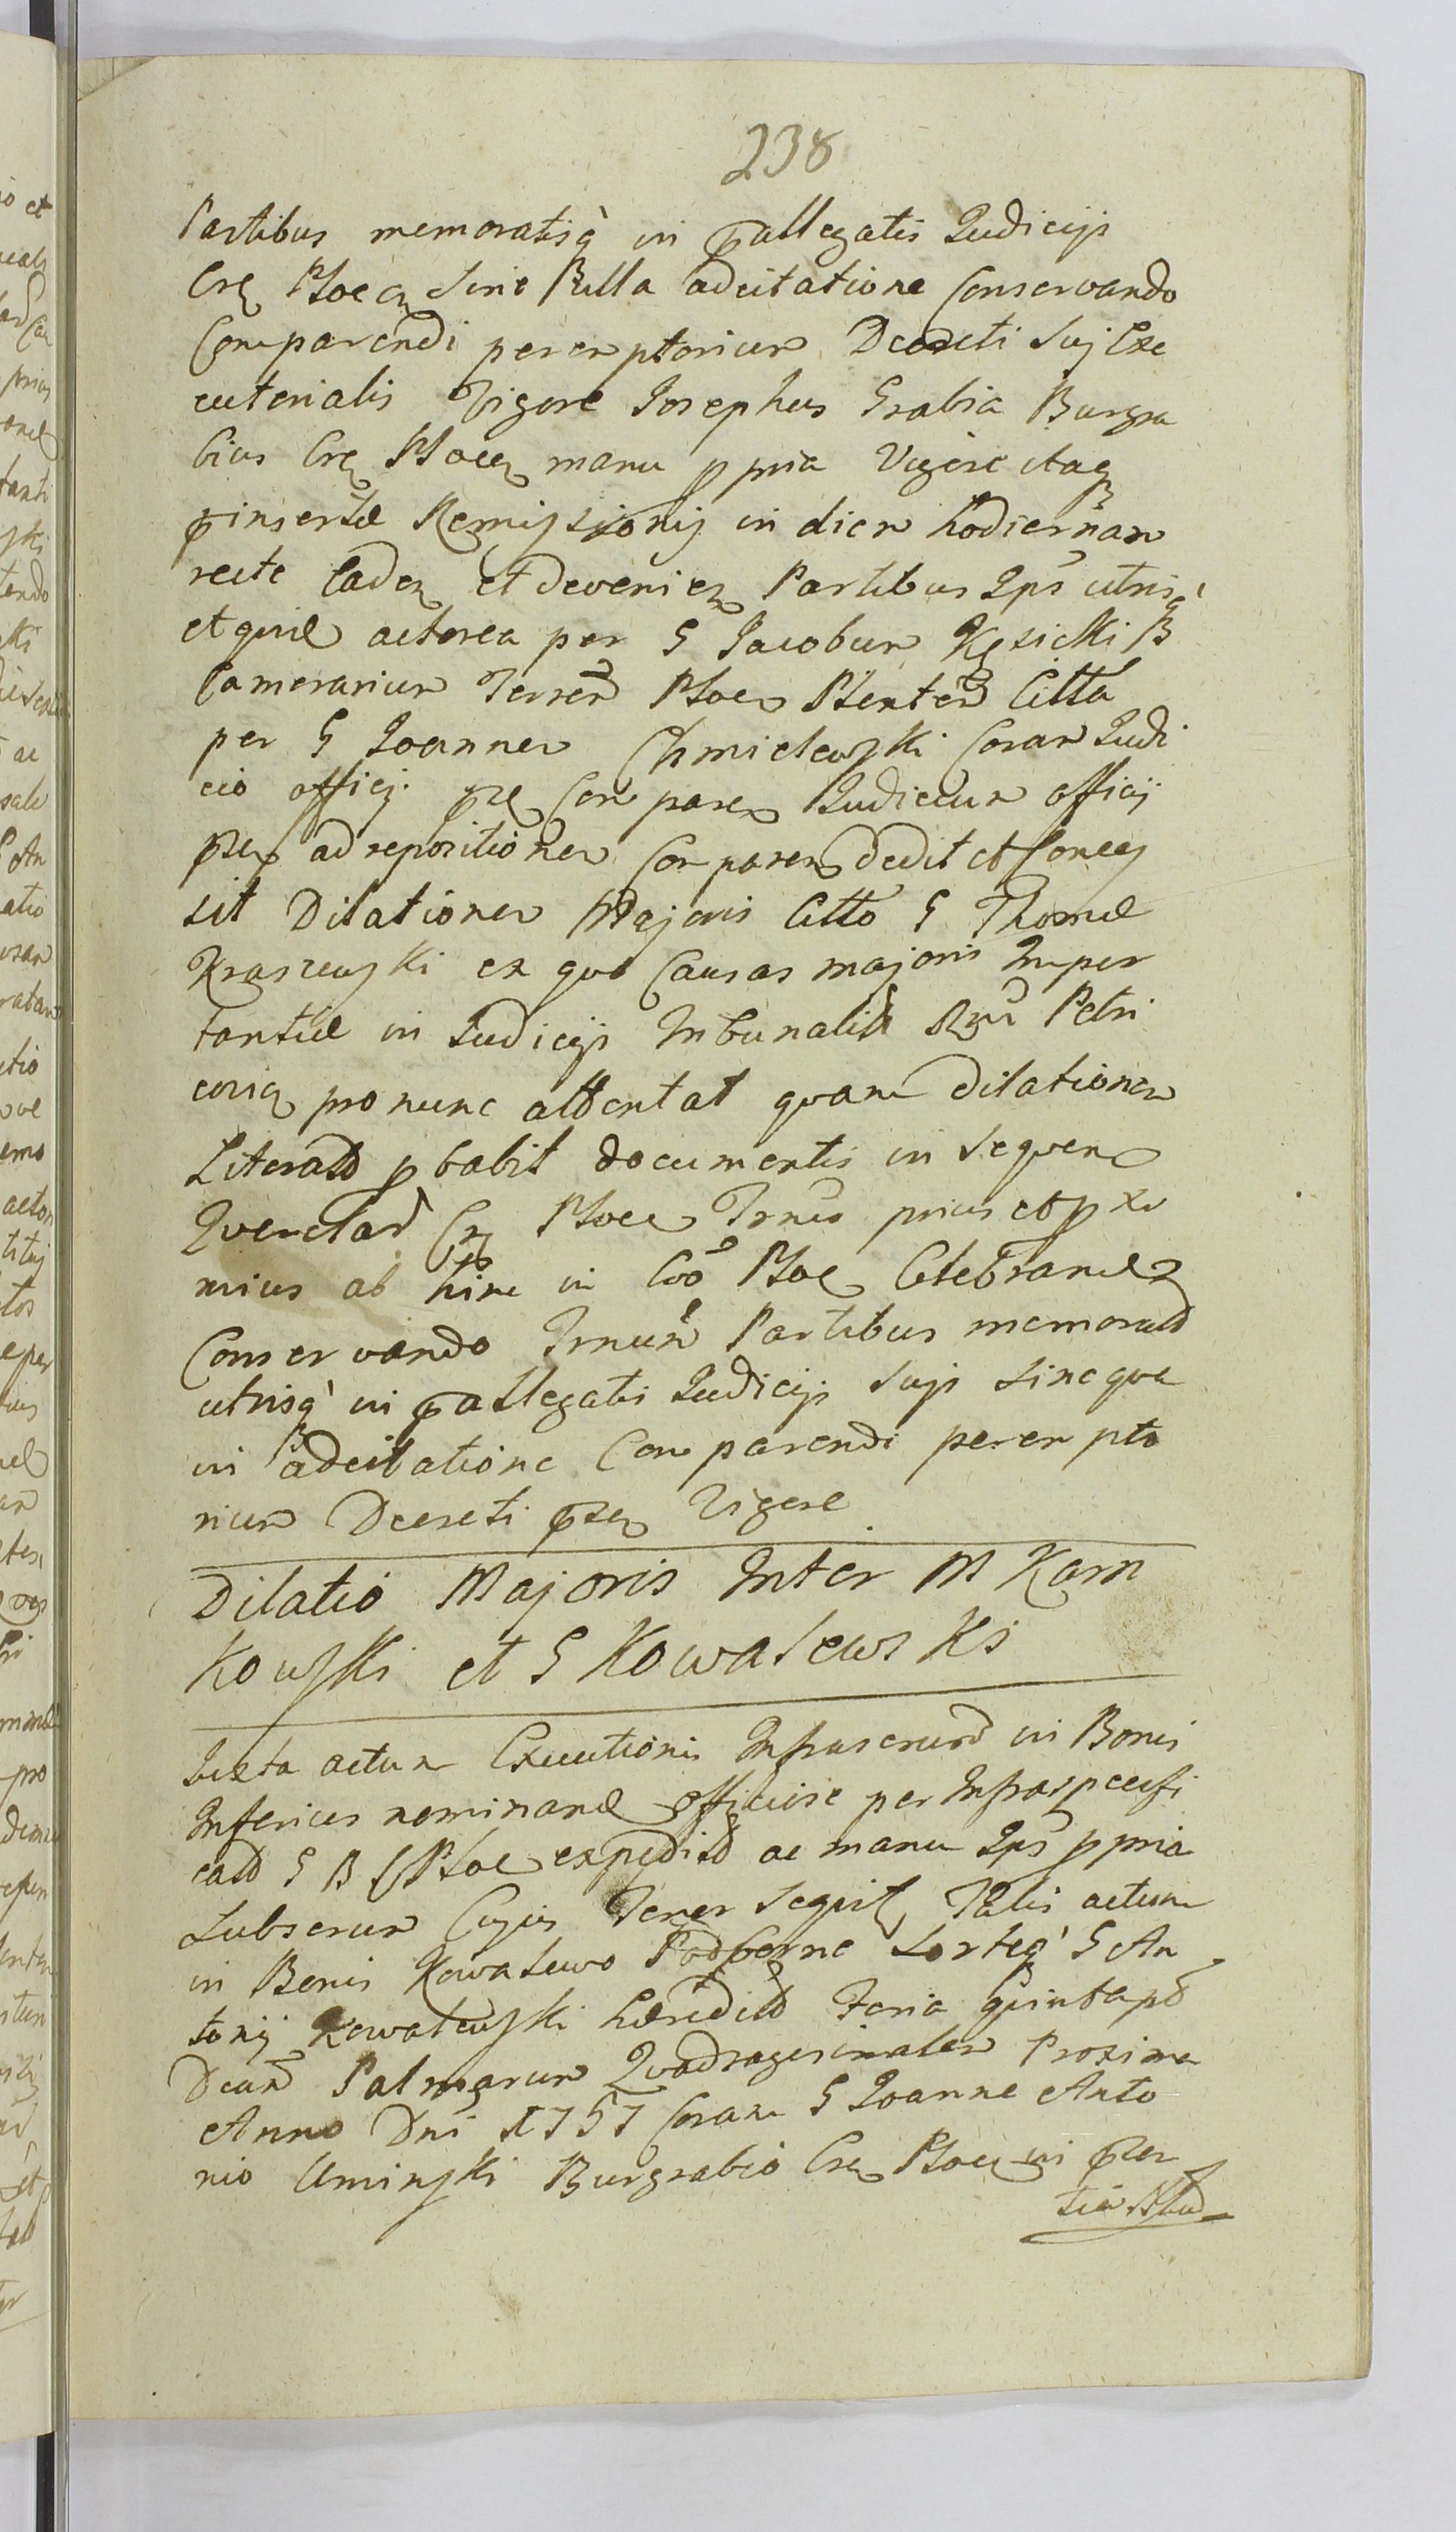 238
Partibus memoratisq́ in p̄allegatis Judicijs
Crẽ Plocen sine Nulla adcitatione Conservando
Comparendi peremptorium Decreti Sui Exe
cutorialis Vigore Josephus Grabia Burgra
bius Crẽ Plocen manu ppria Vigore itaq
p̄insertæ Remissionis in diem hodiernam
recte Caden et devenien Partibus Ips utrisq́
et quid actorea per G Jacobum Kęsicki B
Camerarium Terren Ploc Plenten Citta
per G Joannem Chmielewski Coram Judi
cio officij p̄n Comparen Judicium officij
p̄sen ad repositionem Comparen dedit et Conces
sit Dilationem Majoris Citto G Thomæ
Kraszewski ex quo Causas majoris Impor
tantiæ in Judicijs Tribunalib Rgni Petri
covien pro nunc attentat quam dilationem
Literato pbabit documentis in sequen
Querelar Cr Plocen Trnis prius et pxi
mius ab hinc in Cõo Ploc Celebrand
Conservando Trnum Partibus memorat
utrisq́ in p̄allegatis Judicijs Suis sine qua
vi adcitatione Comparendi perempto
rium Decreti p̄sen Vigore
Dilatio Majoris Inter M Karn
Kowski et G Kowalewski
Juxta actum Executionis Infrascrum in Bonis
Inferius nominand officiose per Infraspecifi
cato G B C Ploc expedito ac manu Ips ppria
Subscrum Cujus Tenor Sequit Talis actum
in Bonis Kowalewo Podborne Sorteq́ G An
tonij Kowalewski hæredito Feria quinta pō
Dcam Palmarum Quadragesimalem Proxima
Anno Dni 1757 Coram G Joanne Anto
nio Uminski Burgrabio Cren Plocen in p̄sen
tia Nbil